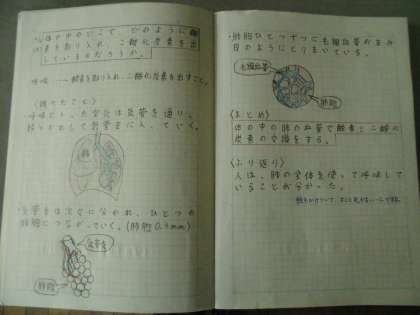 体の中のどこで、どのように酸
素を取り入れ、二酸化炭素を出
しているのだろうか。
呼吸…→酸素を取り入れ、二酸化炭素を出すこと。
〈調べたこと〉
呼吸した空気は気管を通り、
枝分かれした気管支に入っていく。
肺
気管支は次々に分かれ、ひとつの
肺胞につながっていく。(肺胞0.3mm)
気管支
肺胞
・肺胞ひとつずつに毛細血管があみの
目のようにとりまいている。
毛細血管
肺胞
〈まとめ〉
体の中の肺の血管で酸素と二酸化
炭素の交換をする。
〈ふり返り〉
人は、肺の全体を使って呼吸して
いることが分かった。